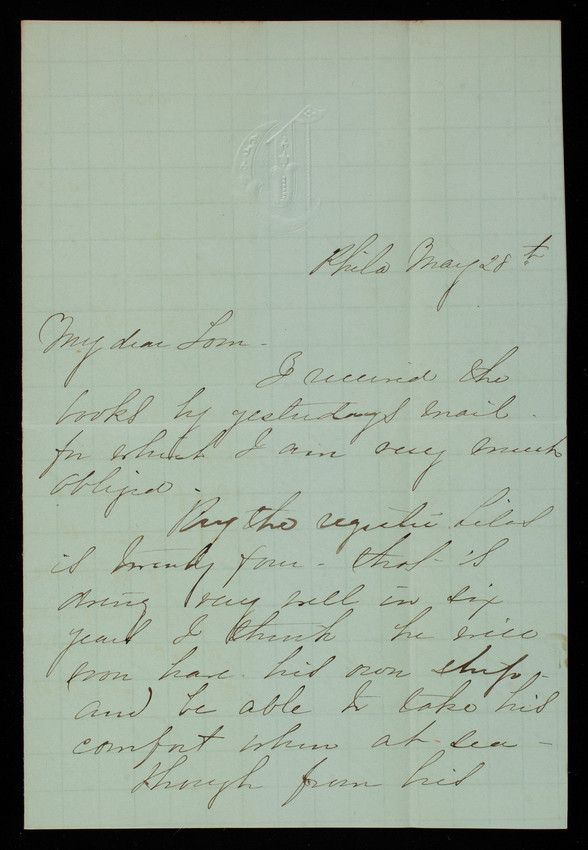 Phila May 28th
My dear Tom -
I received the
books by yesterdays mail -
for which I am very much
obliged.
By the register Silas
is twenty four - that is
doing very well in six
years I think he will
soon have his own ship -
and be able to take his
comfort when at sea -
though from his